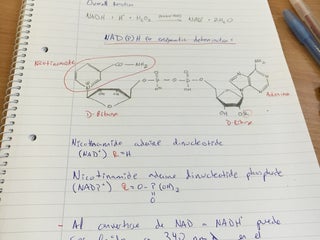 Overall reaction
NADH + H⁺ + H₂O₂ → NAD⁺ + 2H₂O
NAD(P)H for enzymatic determination
Nicotinamide
NH₂
NH₂
Adenine
OH
D-Ribose
D-Ribose
Nicotinamide adenine dinucleotide
(NAD⁺) R = H
Nicotinamide adenine dinucleotide phosphate
(NADP⁺) R = O-P(OH)₂
O
- Al convertirse de NAD a NADH puede
340 en el